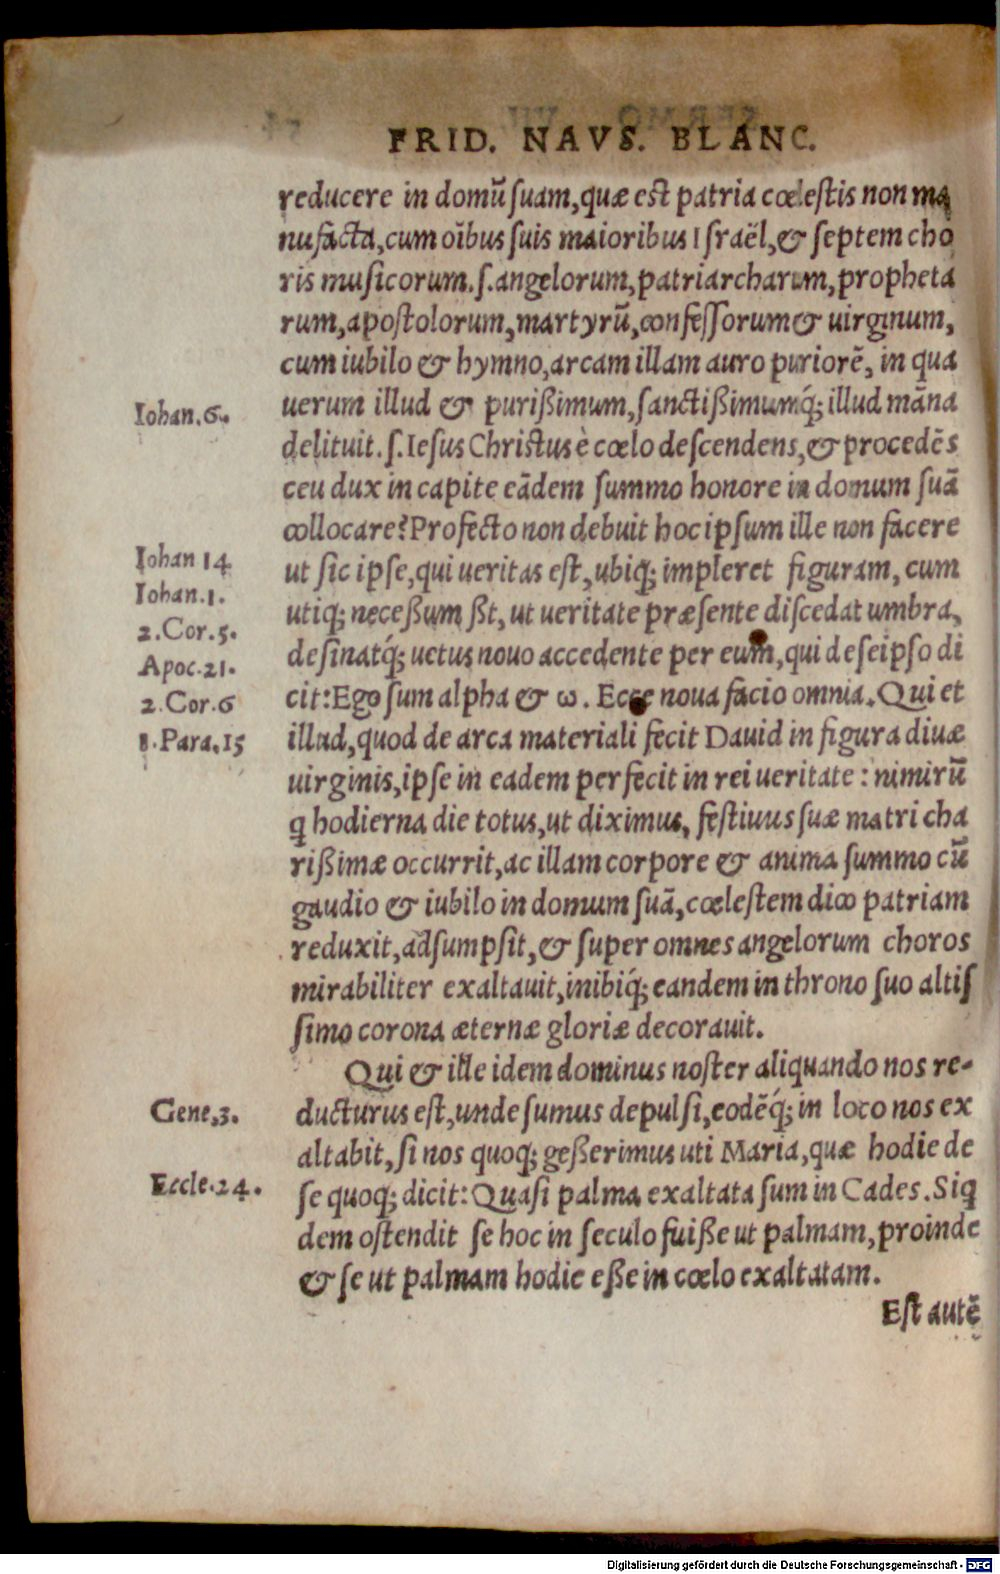 FRID. NAVS. BLANC.
reducere in domū ſuam,quæ est patria cœleſtis non ma
nufacta,cum oībus ſuis maioribus Iſraël,& ſeptem cho
ris muſicorum.ſ.angelorum,patriarcharum,propheta
rum,apoſtolorum,martyrū,confeſſorum& uirginum,
cum iubilo & hymno,arcam illam auro puriorē, in qua
Iohan.6.
uerum illud & purißimum,ſanctißimumq́; illud māna
delituit.ſ.Ieſus Chriſtus è cœlo deſcendens,& procedēs
ceu dux in capite eādem ſummo honore in domum ſuā
collocare?Profecto non debuit hoc ipſum ille non facere
Iohan 14
ut ſic ipſe,qui ueritas est,ubiq; impleret figuram, cum
Iohan.1.
utiq; neceßum ſit, ut ueritate præſente diſcedat umbra,
2.Cor.5.
Apoc.21.
deſinatq́; uetus nouo accedente per eum,qui de ſeipſo di
2.Cor.6
cit:Ego ſum alpha & ω. Ecce noua facio omnia.Qui et
1.Para.15
illud,quod de arca materiali fecit Dauid in figura diuæ
uirginis,ipſe in eadem perfecit in rei ueritate : nimirū
ꝙ hodierna die totus,ut diximus, feſtiuus ſuæ matri cha
rißimæ occurrit,ac illam corpore & anima ſummo cū
gaudio & iubilo in domum ſuā,cœleſtem dico patriam
reduxit,adſumpſit,& ſuper omnes angelorum choros
mirabiliter exaltauit,inibiq́; eandem in throno ſuo altiſ
ſimo corona æternæ gloriæ decorauit.
Qui & ille idem dominus noſter aliquando nos re-
Gene.3.
ducturus eſt,unde ſumus depulſi,eodēq́; in loco nos ex
altabit,ſi nos quoq; geßerimus uti Maria,quæ hodie de
Eccle.24.
ſe quoq; dicit:Quaſi palma exaltata ſum in Cades.Siꝗ
dem oſtendit ſe hoc in ſeculo fuiße ut palmam,proinde
& ſe ut palmam hodie eße in cœlo exaltatam.
Eſt autē
Digitalisierung gefördert durch die Deutsche Forschungsgemeinschaft - DFG